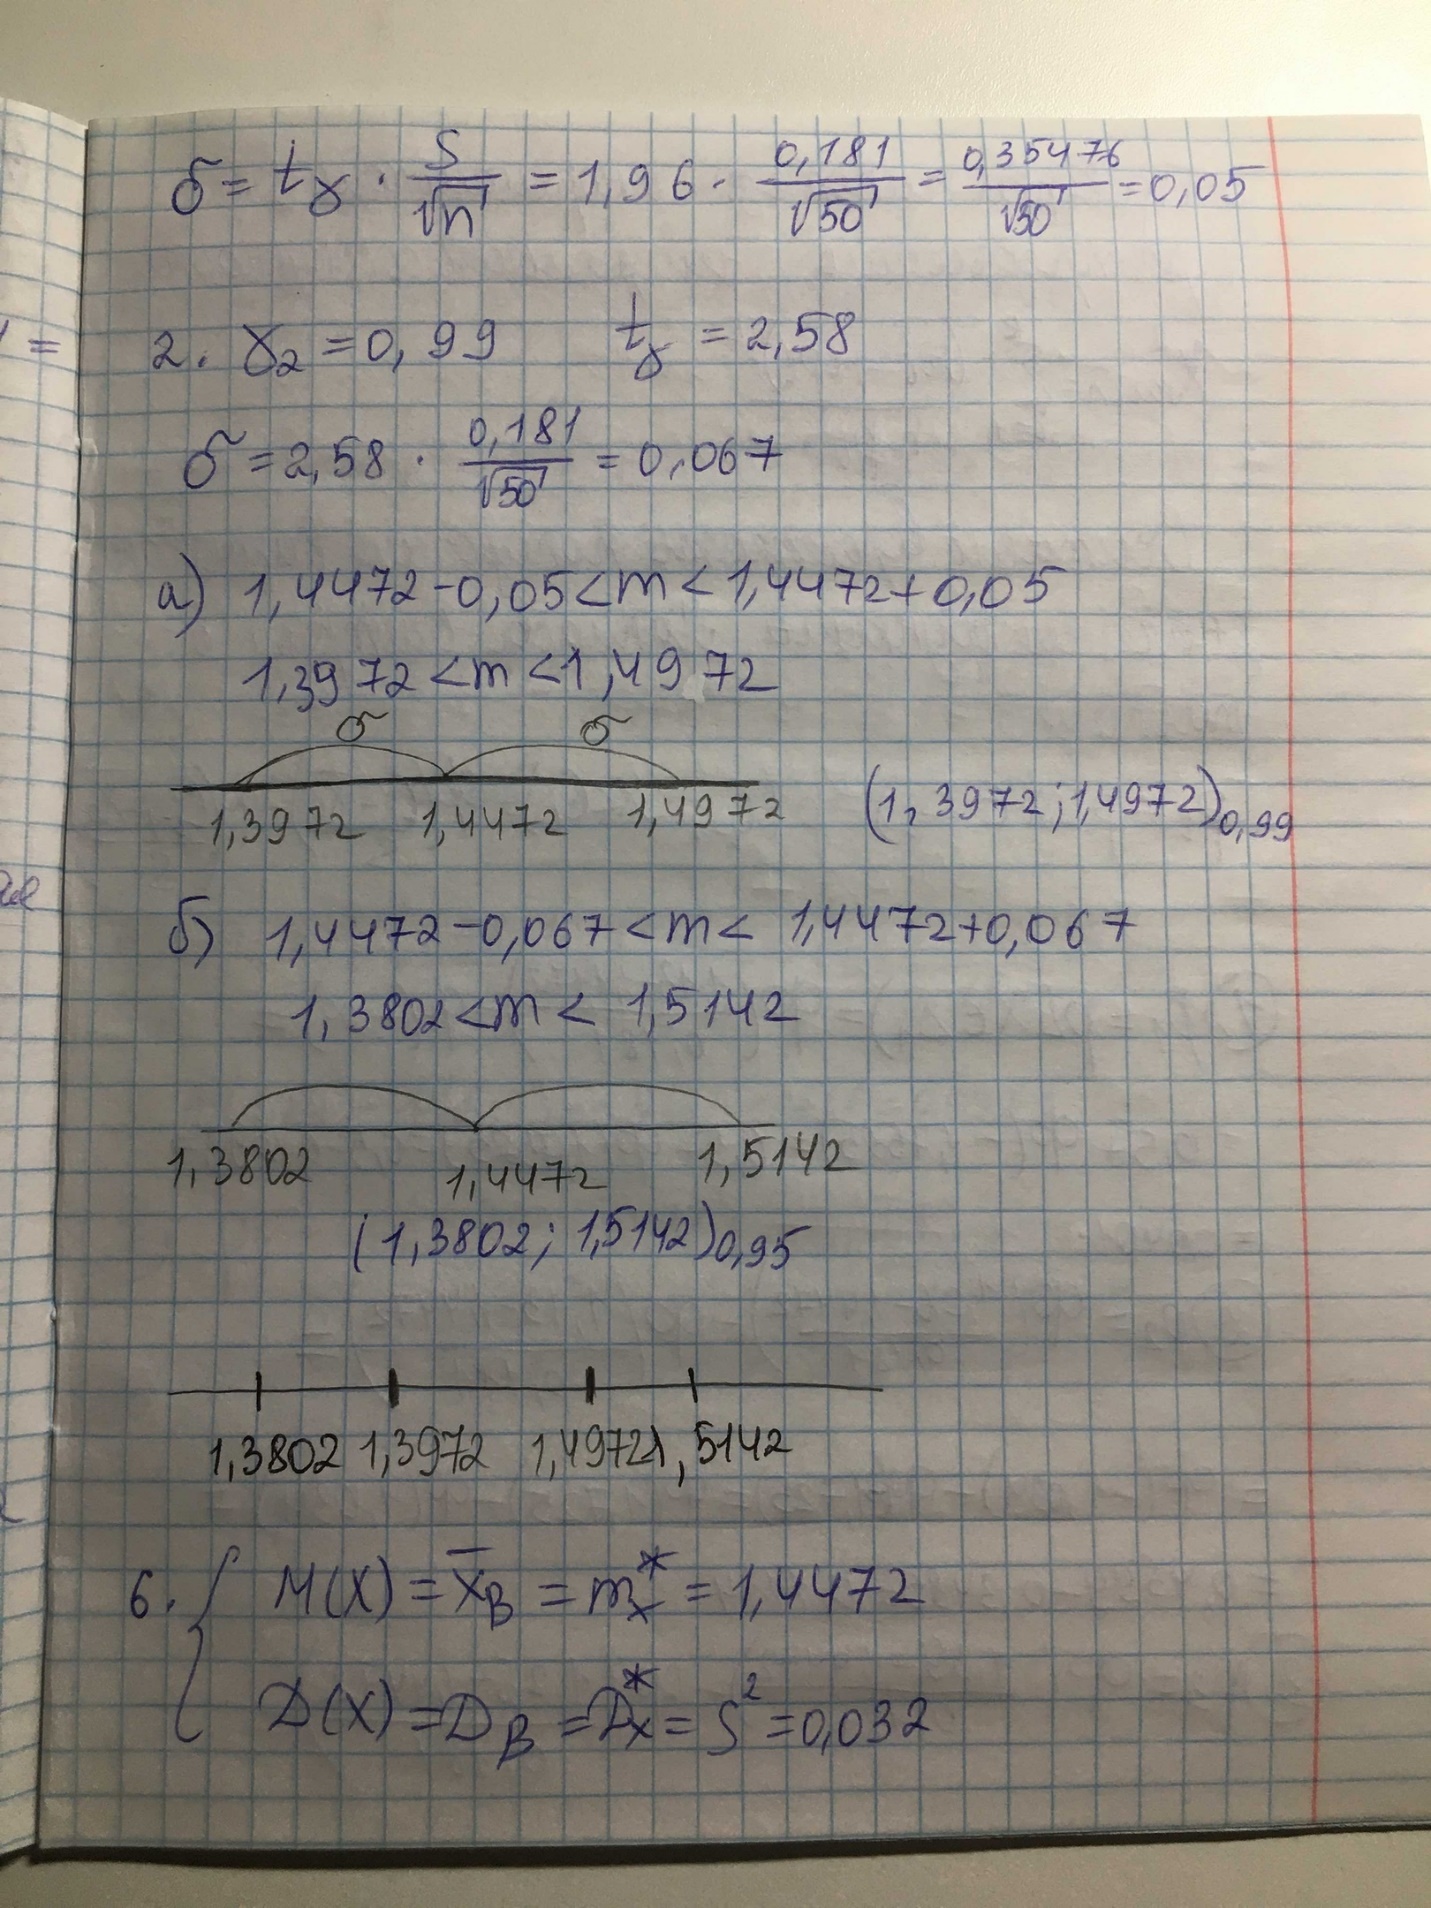 δ = tγ · S/√n = 1,96 · 0,181/√50 = 0,35476/√50 = 0,05
2. γ2 = 0,99 tγ = 2,58
δ = 2,58 · 0,181/√50 = 0,067
а) 1,4472-0,05<m<1,4472+0,05
1,3972<m<1,4972
δ δ
1,3972 1,4472 1,4972 (1,3972;1,4972)0,99
б) 1,4472-0,067<m<1,4472+0,067
1,3802<m<1,5142
1,3802 1,4472 1,5142
(1,3802; 1,5142)0,95
1,3802 1,3972 1,4972 1,5142
6. { M(X) = x̄В = mx* = 1,4472
D(X) = DВ = Dx* = S² = 0,032